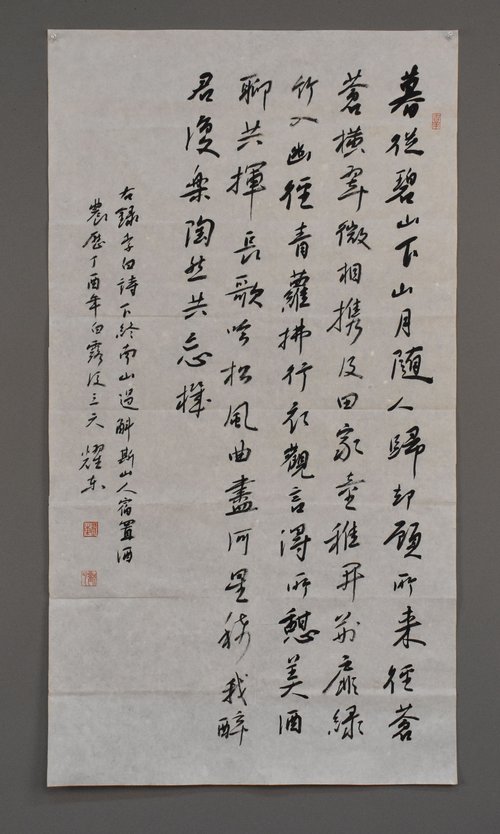 暮從碧山下山月隨人歸却顧所來徑蒼
蒼橫翠微相携及田家童稚開荊扉綠
竹入幽徑青蘿拂行衣觀言得所憩美酒
聊共揮長歌吟松風曲盡河星稀我醉
君復樂陶然共忘機
右錄李白詩下終南山過斛斯山人宿置酒
農歷丁酉年白露後三天 耀东